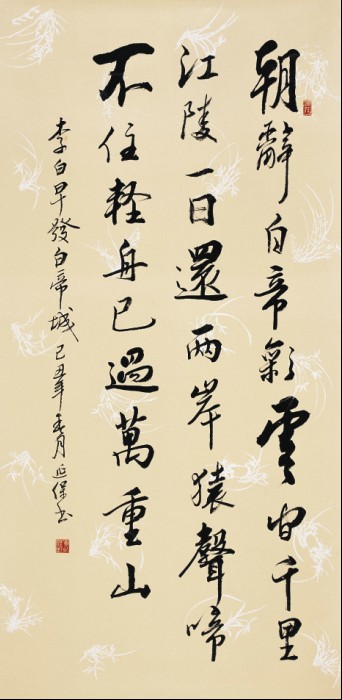 朝辭白帝彩雲間千里
江陵一日還兩岸猿聲啼
不住輕舟已過萬重山
李白早發白帝城 己丑年春月延保书